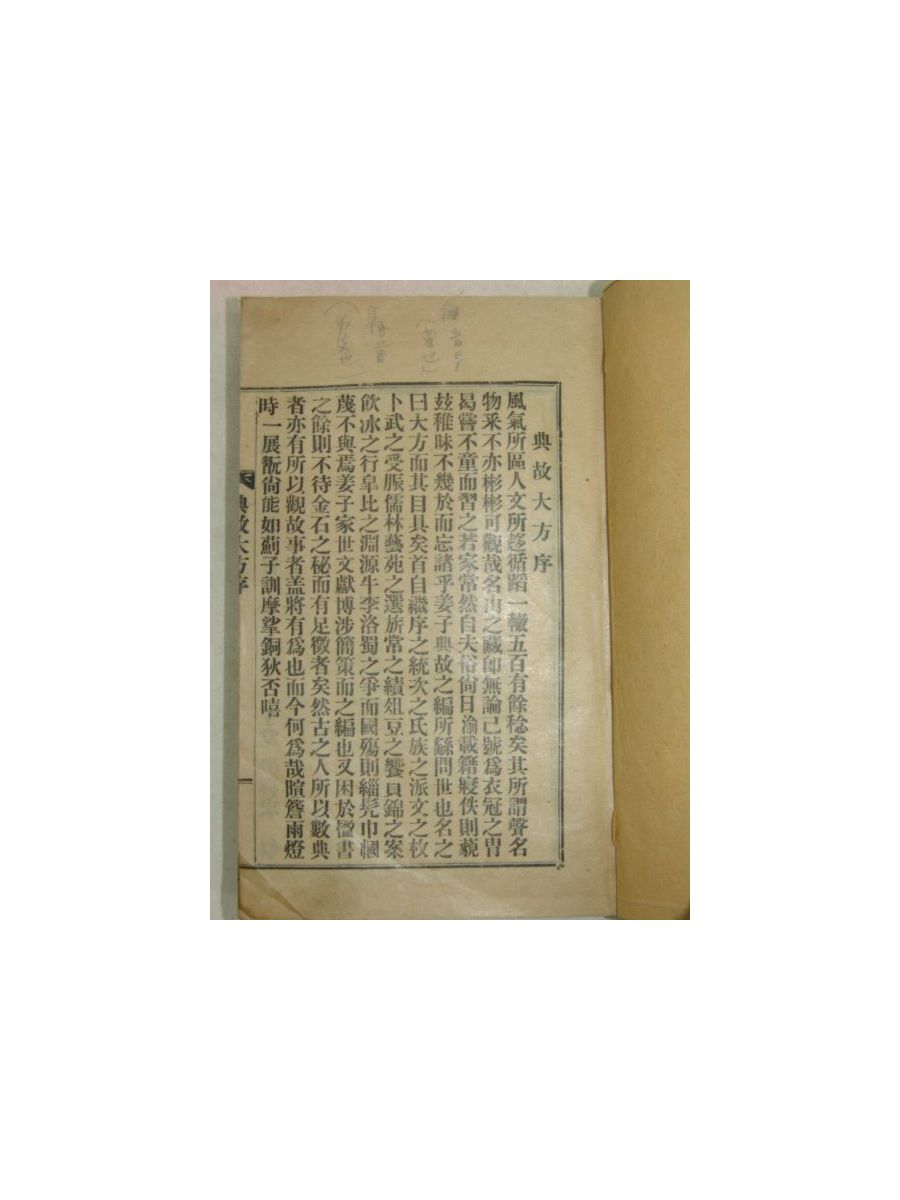 典故大方序
風氣所區人文所趍循蹈一轍五百有餘稔矣其所謂聲名
物釆不亦彬彬可觀哉名山之藏卽無論已號爲衣冠之冑
曷嘗不童而習之若家常然自夫俗尙日渝載籍寖佚則藐
玆稚昧不幾於而忘諸乎姜子典故之編所繇問世也名之
曰大方而其目具矣首自繼序之統次之氏族之派文之枚
卜武之受脤儒林藝苑之選旂常之績俎豆之饗貝錦之案
飮冰之行臯比之淵源牛李洛蜀之爭而國殤則緇髡巾幗
蔑不與焉姜子家世文獻博涉簡策而之編也又困於儘書
之餘則不待金石之秘而有足徵者矣然古之人所以數典
者亦有所以觀故事者盖將有爲也而今何爲哉暄簷雨燈
時一展翫尙能如薊子訓摩挲銅狄否嘻
典故大方序